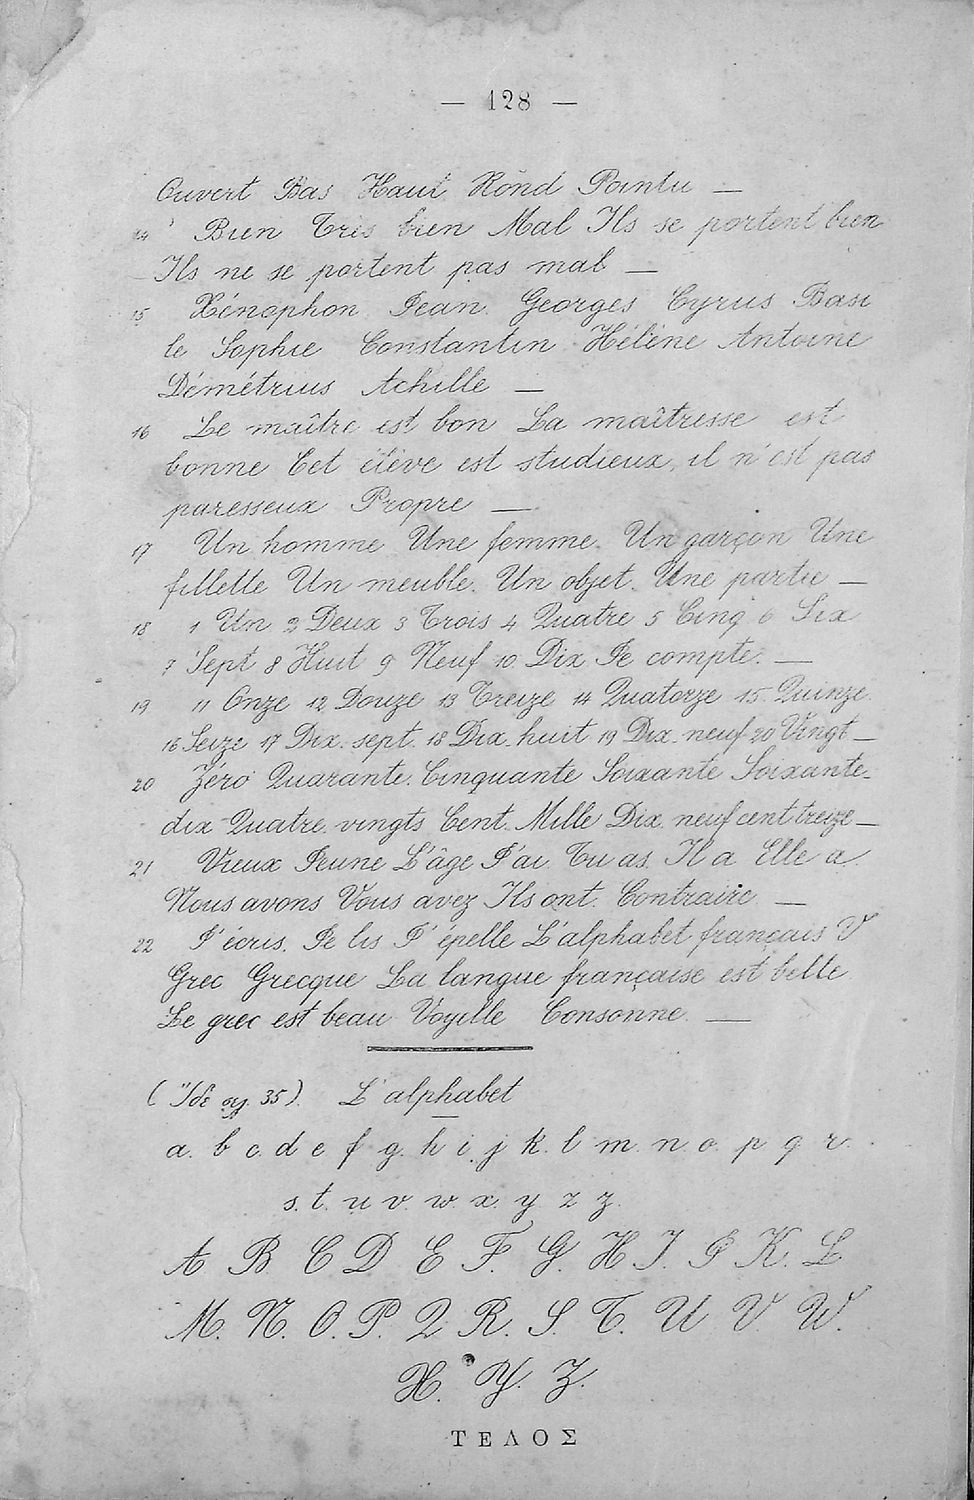 — 128 —
Ouvert Bas Haut Rond Pointu —
14 Bien Très bien Mal Ils se portent bien
Ils ne se portent pas mal —
15 Xénophon Jean Georges Cyrus Basi
le Sophie Constantin Hélène Antoine
Démétrius Achille —
16 Le maître est bon La maîtresse est
bonne Cet élève est studieux, il n'est pas
paresseux Propre —
17 Un homme Une femme. Un garçon Une
fillette Un meuble. Un objet. Une partie —
18 1 Un 2 Deux 3 Trois 4 Quatre 5 Cinq 6 Six
7 Sept 8 Huit 9 Neuf 10 Dix Je compte. —
19 11 Onze 12 Douze 13 Treize 14 Quatorze 15 Quinze
16 Seize 17 Dix-sept. 18 Dix huit 19 Dix-neuf 20 Vingt —
20 Zéro Quarante. Cinquante Soixante Soixante-
dix Quatre vingts Cent. Mille Dix neuf cent treize —
21 Vieux Jeune L'âge J'ai Tu as. Il a Elle a
Nous avons Vous avez Ils ont. Contraire —
22 J'écris. Je lis J'épelle L'alphabet français V
Grec Grecque La langue française est belle
Le grec est beau Voyelle Consonne. —
("Ιδε σχ. 35). L'alphabet
a. b c. d e f g. h i j k. l m. n. o. p q r.
s. t. u v. w. x. y z z.
A B C D E F. G. H I. J K. L
M. N. O. P. Q R. S. T. U V. W.
X. Y. Z.
ΤΕΛΟΣ